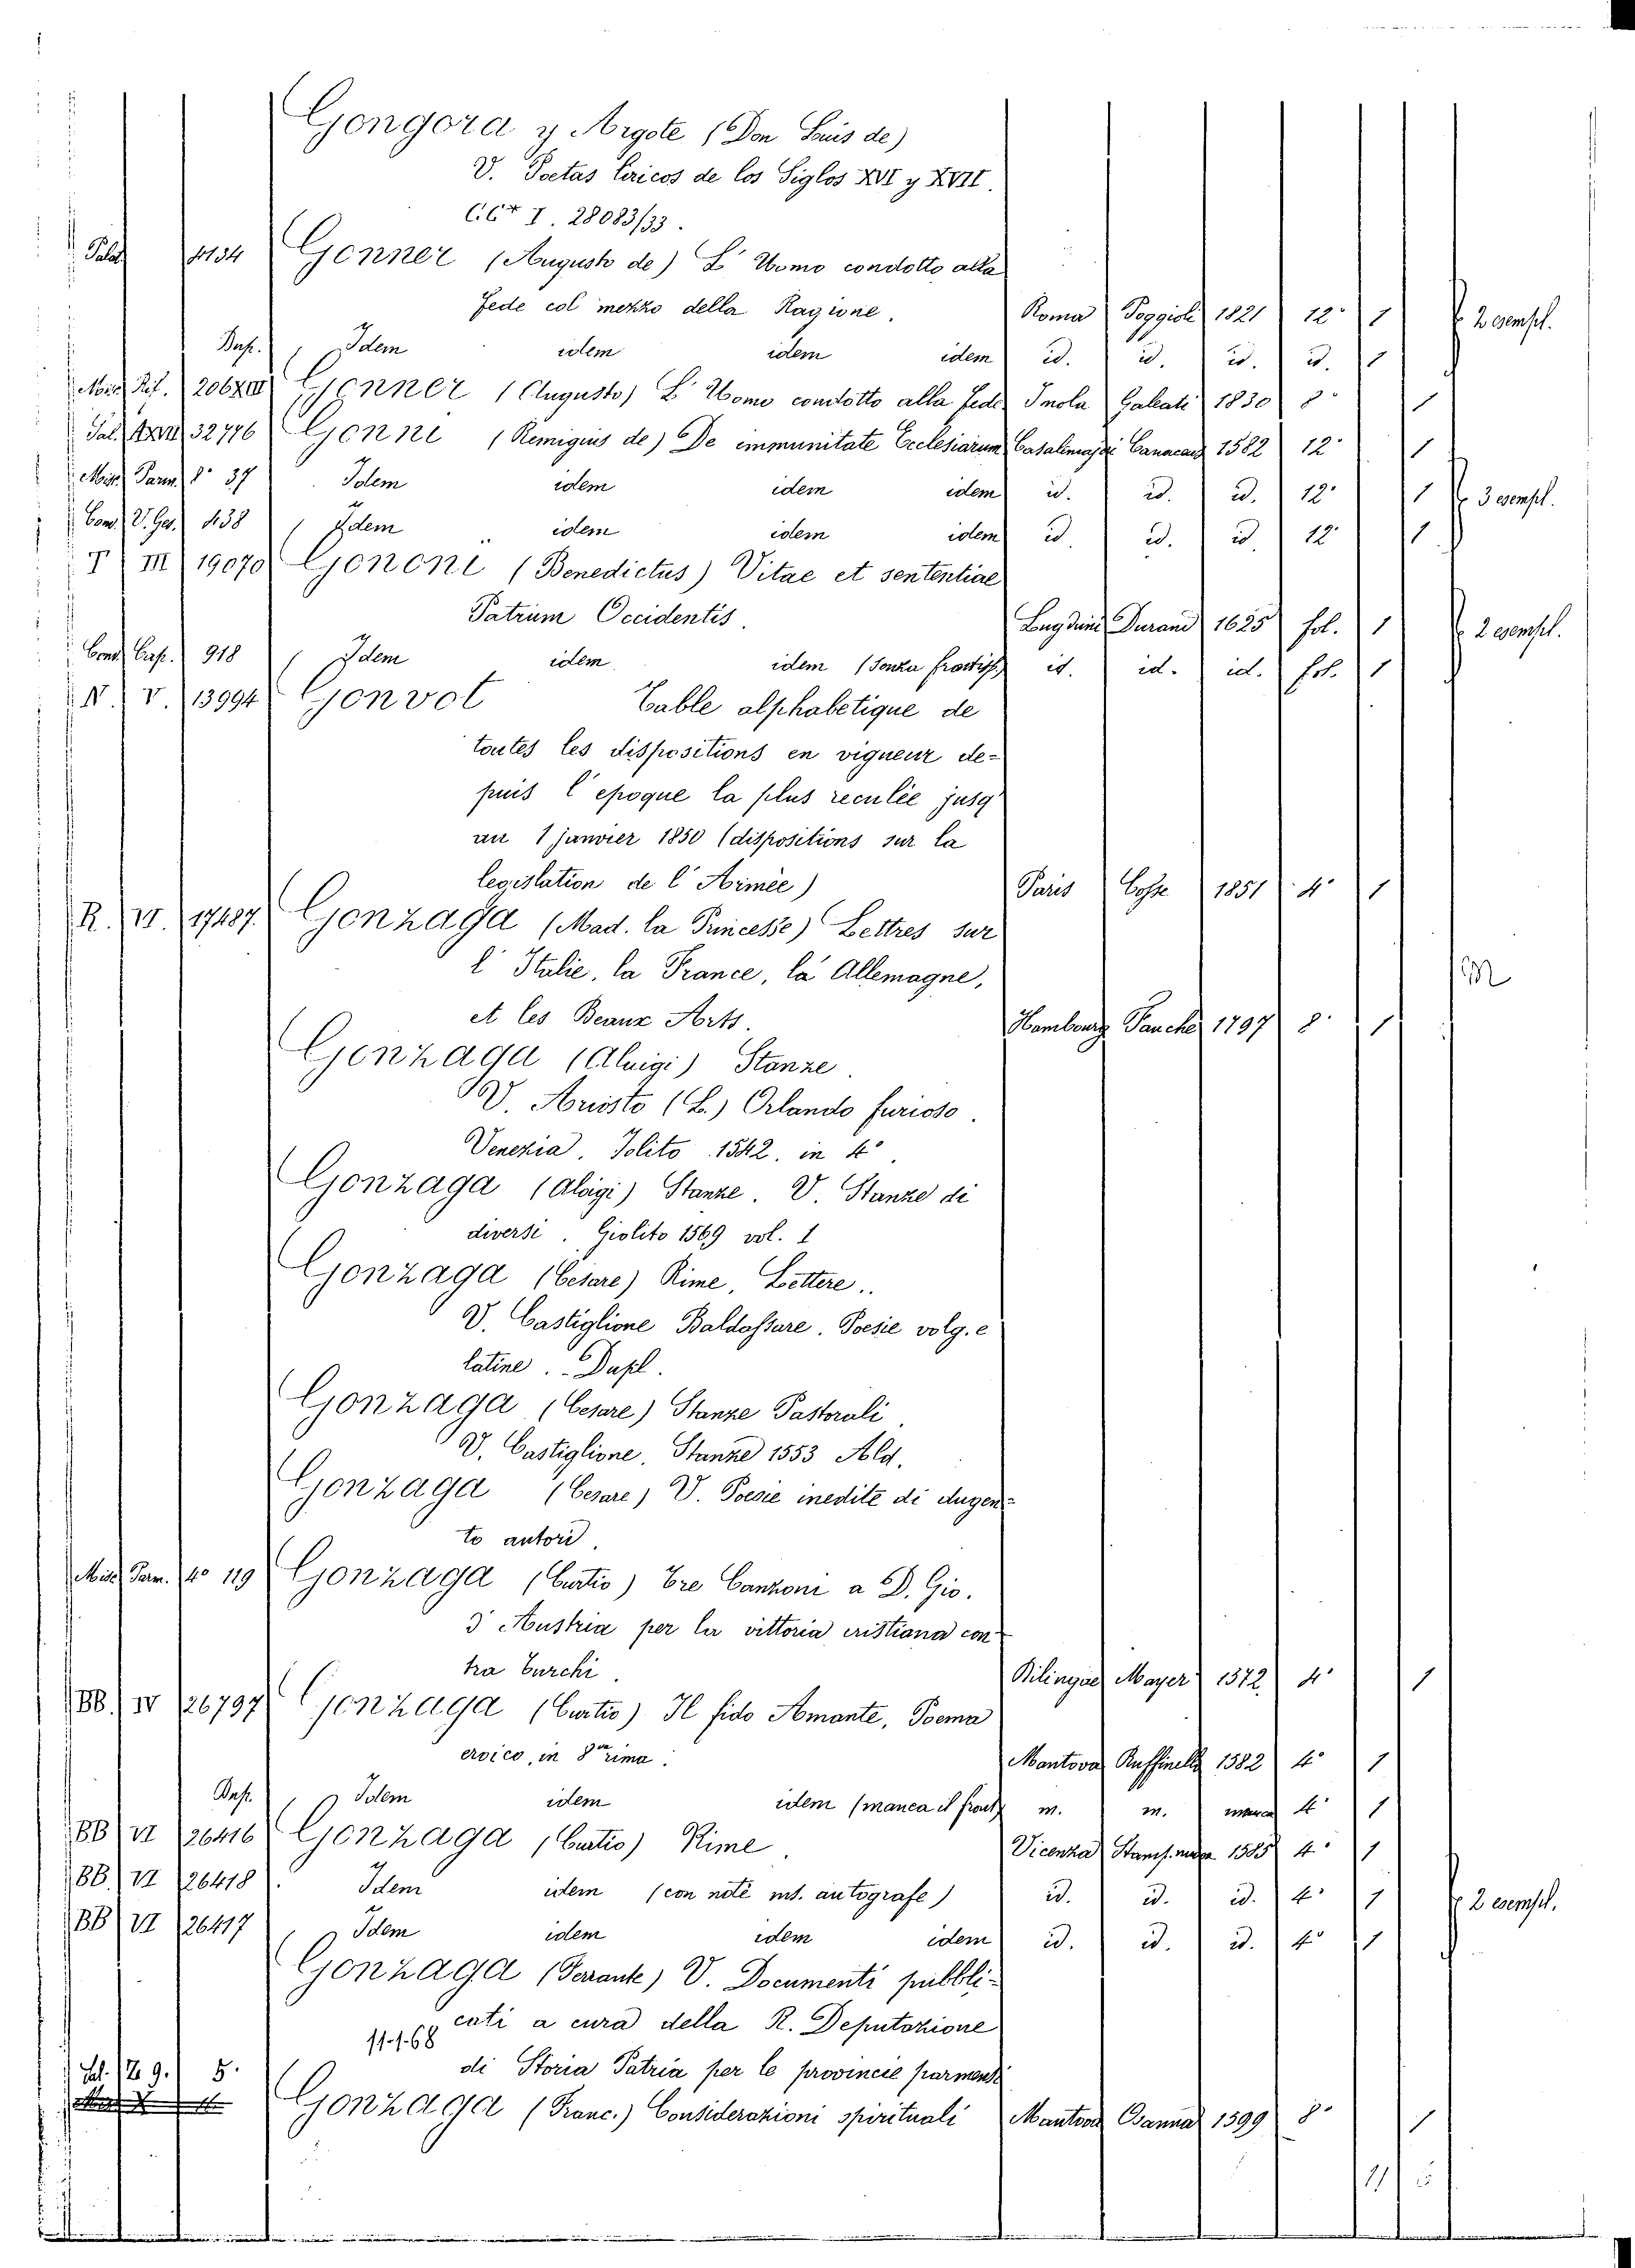 Gongora y Argote (Don Luis de)
V. Poetas liricos de los Siglos XVI y XVII.
I. 28083/33.
Palat 4134 Gonner (Augusto de) L' Uomo condotto alla
fede col mezzo della Ragione. Roma Poggioli 1821 12° 1 2 esempl.
Dup. Idem idem idem idem id. id. id. id. 1
Misc. Gonner (Augusto) L' Uomo condotto alla fede Imola Galeati 1830 8° 1
Pal. 32776 Gonni (Remigius de) De immunitate Ecclesiarum Casalimajori Canacaus 1582 12° 1
Misc. Parm. 8° 37 Idem idem idem idem id. id. id. 12° 1 3 esempl.
Conv. V. Ges. 438 Idem idem idem idem id. id. id. 12° 1
T III 19070 Gononi (Benedictus) Vitae et sententiae
Patrum Occidentis. Lugduni Durand 1625 fol. 1 2 esempl.
Conv. Cap. 918 Idem idem idem (senza frontisp.) id. id. id. fol. 1
N. V. 13994 Gonvot Table alphabetique de
toutes les dispositions en vigueur de-
puis l'epoque la plus reculée jusq'
au 1 janvier 1850 (dispositions sur la
legislation de l'Armée) Paris Cosse 1851 4° 1
R. VI. 17487. Gonzaga (Mad. la Princesse) Lettres sur
l'Italie, la France, la Allemagne,
et les Beaux Arts. Hambourg Fauche 1797 8° 1
Gonzaga (Aluigi) Stanze.
V. Ariosto (L.) Orlando furioso.
Venezia. Jolito 1542. in 4°.
Gonzaga (Aloigi) Stanze. V. Stanze di
diversi. Giolito 1569 vol. 1
Gonzaga (Cesare) Rime, Lettere..
V. Castiglione Baldassare. Poesie volg. e
latine. - Dupl.
Gonzaga (Cesare) Stanze Pastorali.
V. Castiglione. Stanze 1553 Ald.
Gonzaga (Cesare) V. Poesie inedite di dugen-
to autori.
Misc. Parm. 4° 119 Gonzaga (Curtio) Tre Canzoni a D. Gio.
d' Austria per la vittoria cristiana con
tra Turchi. Dilingae Mayer 1572. 4° 1
BB. IV 26797 Gonzaga (Curtio) Il fido Amante, Poema
eroico, in 8va rima. Mantova Ruffinelli 1582 4° 1
Dup. Idem idem idem (manca il front.) m. m. manca 4° 1
BB VI 26416 Gonzaga (Curtio) Rime. Vicenza Stamp. nuova 1585 4° 1
BB. VI 26418 Idem idem (con note ms. autografe) id. id. id. 4° 1 2 esempl.
BB VI 26417 Idem idem idem idem id. id. id. 4° 1
Gonzaga (Ferrante) V. Documenti pubbli-
cati a cura della R. Deputazione
11-1-68
di Storia Patria per le provincie parmensi
Sal. 9. 5.
Gonzaga (Franc.) Considerazioni spirituali Mantova Osanna 1599 8° 1